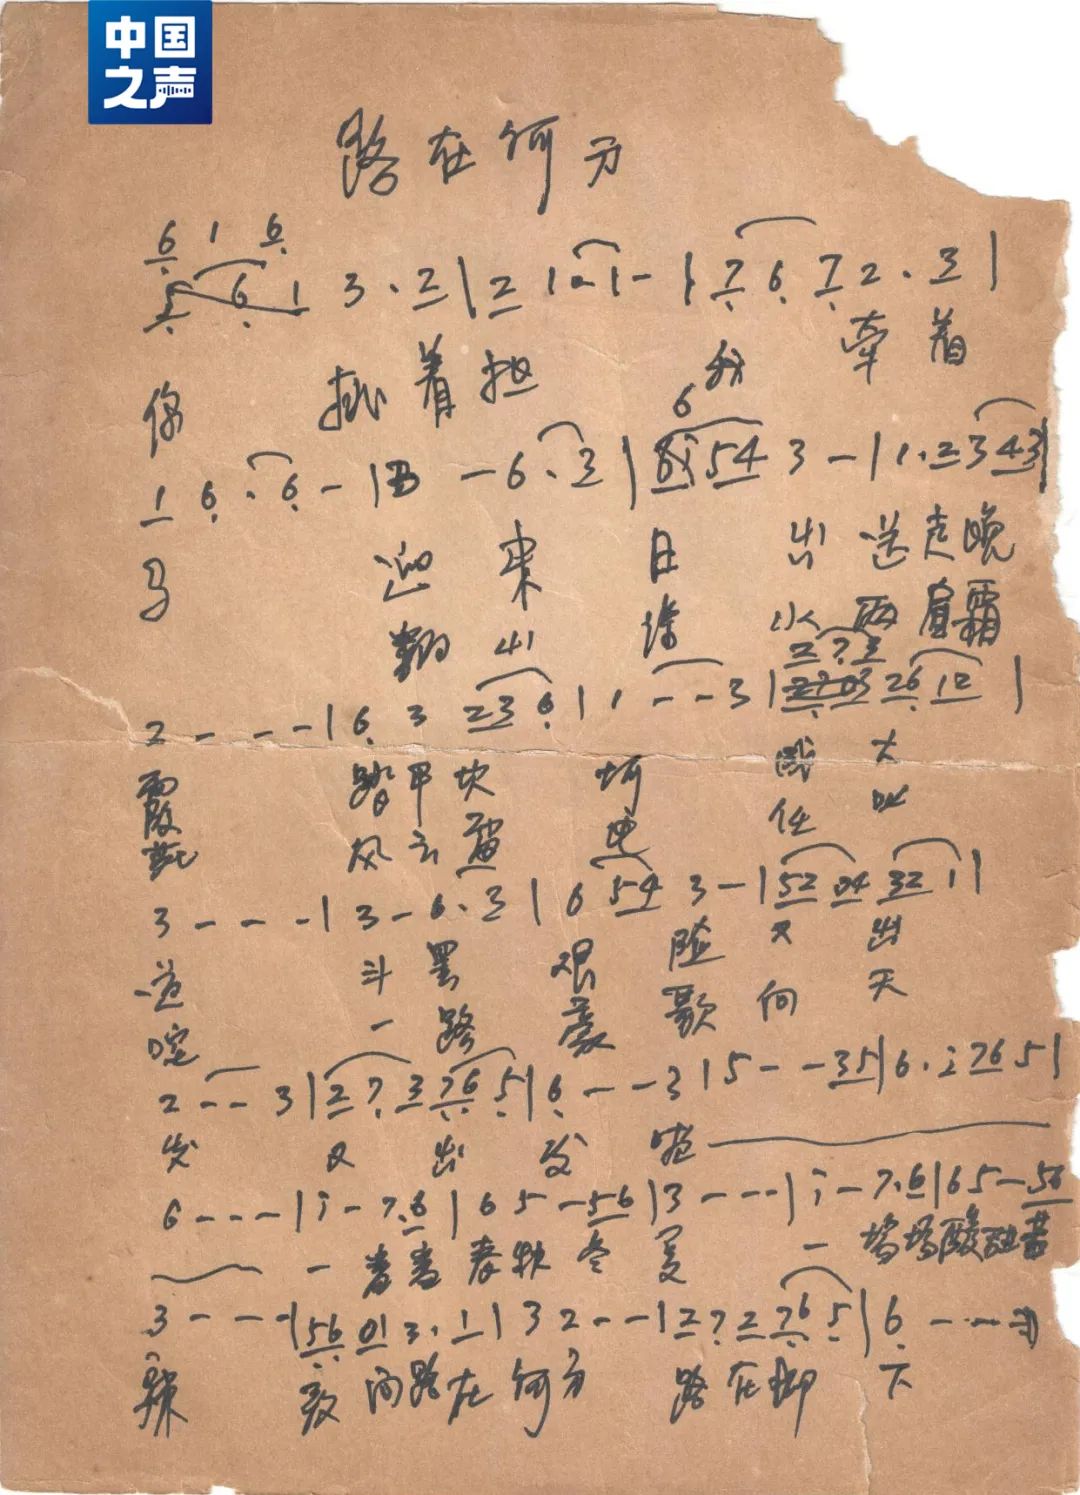 中国
之声
路在何方
6 1 6
5 6 1 3 · 2 | 2 1 · 1 - | 7 6 7 2 · 3 |
你 挑着担 我 牵着
6
1 6 · 6 - | 3 - 6 · 3 | 54 3 - | 1 · 2 3 43 |
马 迎来日 出送走晚
翻山涉 水两肩霜
2 7 3
2 - - - | 6 3 23 6 | 1 - - 3 | 26 12 |
霞 踏平坎 坷 成大
花 风云雷 电 任叱
3 - - - | 3 - 6 · 3 | 6 54 3 - | 52 04 32 1 |
道 斗罢艰险又出
咤 一路豪歌向天
2 - - 3 | 2 7 3 76 5 | 6 - - 3 | 5 - - 35 | 6 · i 76 5 |
发 又出发 啦
6 - - - | i - 7 · 6 | 6 5 - 56 | 3 - - - | i - 7 · 6 | 6 5 - 56
一番番春秋冬夏 一场场酸甜苦
3 - - - | 56 01 3 · 1 | 3 2 - - | 2 7 2 76 5 | 6 - - -
辣 敢问路在何方 路在脚下